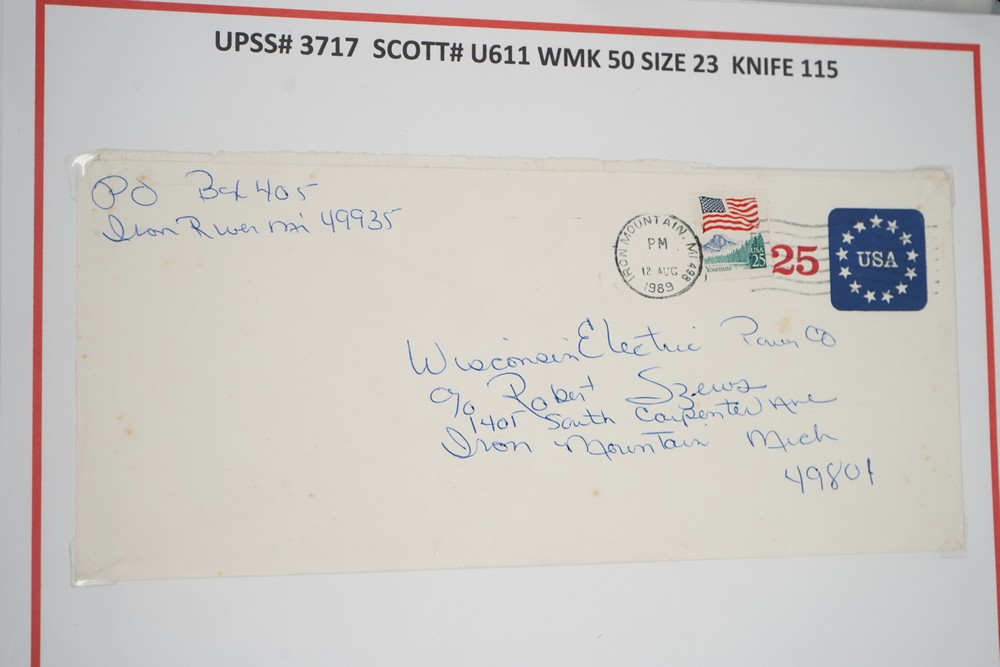 UPSS# 3717 SCOTT# U611 WMK 50 SIZE 23 KNIFE 115
PO Box 405
Iron River Mi 49935
IRON MOUNTAIN, MI 498
PM
12 AUG
1989
USA
25
Yosemite
25
USA
Wisconsin Electric Power Co
c/o Robert Szews
1405 South Carpenter Ave
Iron Mountain Mich
49801